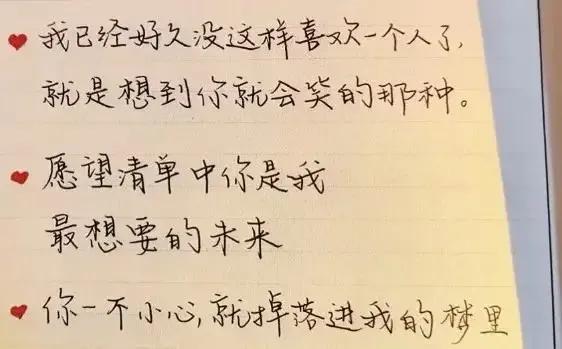 我已经好久没这样喜欢一个人了,
就是想到你就会笑的那种。
愿望清单中你是我
最想要的未来
你一不小心,就掉落进我的梦里